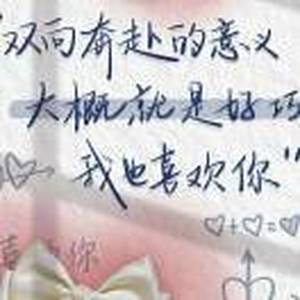 “双向奔赴的意义
大概就是好巧
我也喜欢你”
♡+♡=♡
喜 你